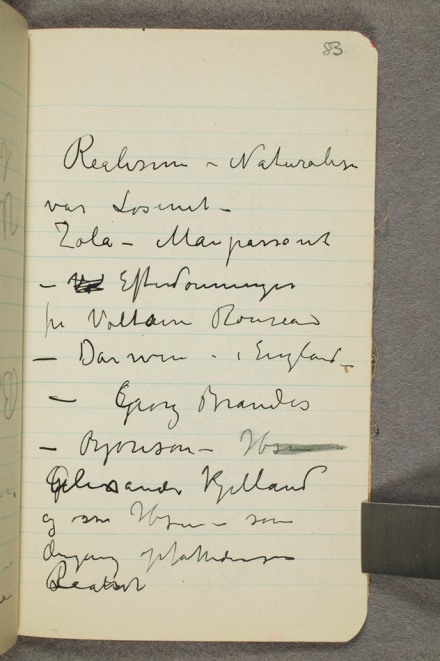 83
Realismen – Naturalisme
var Losenet –
Zola – Maupassant
– Efterdønninger
fra Voltaire Rouseau
– Darwin – i England –
– Georg Brandes
– Bjørnson –
Alexander Kjelland
og så Ibsen – som